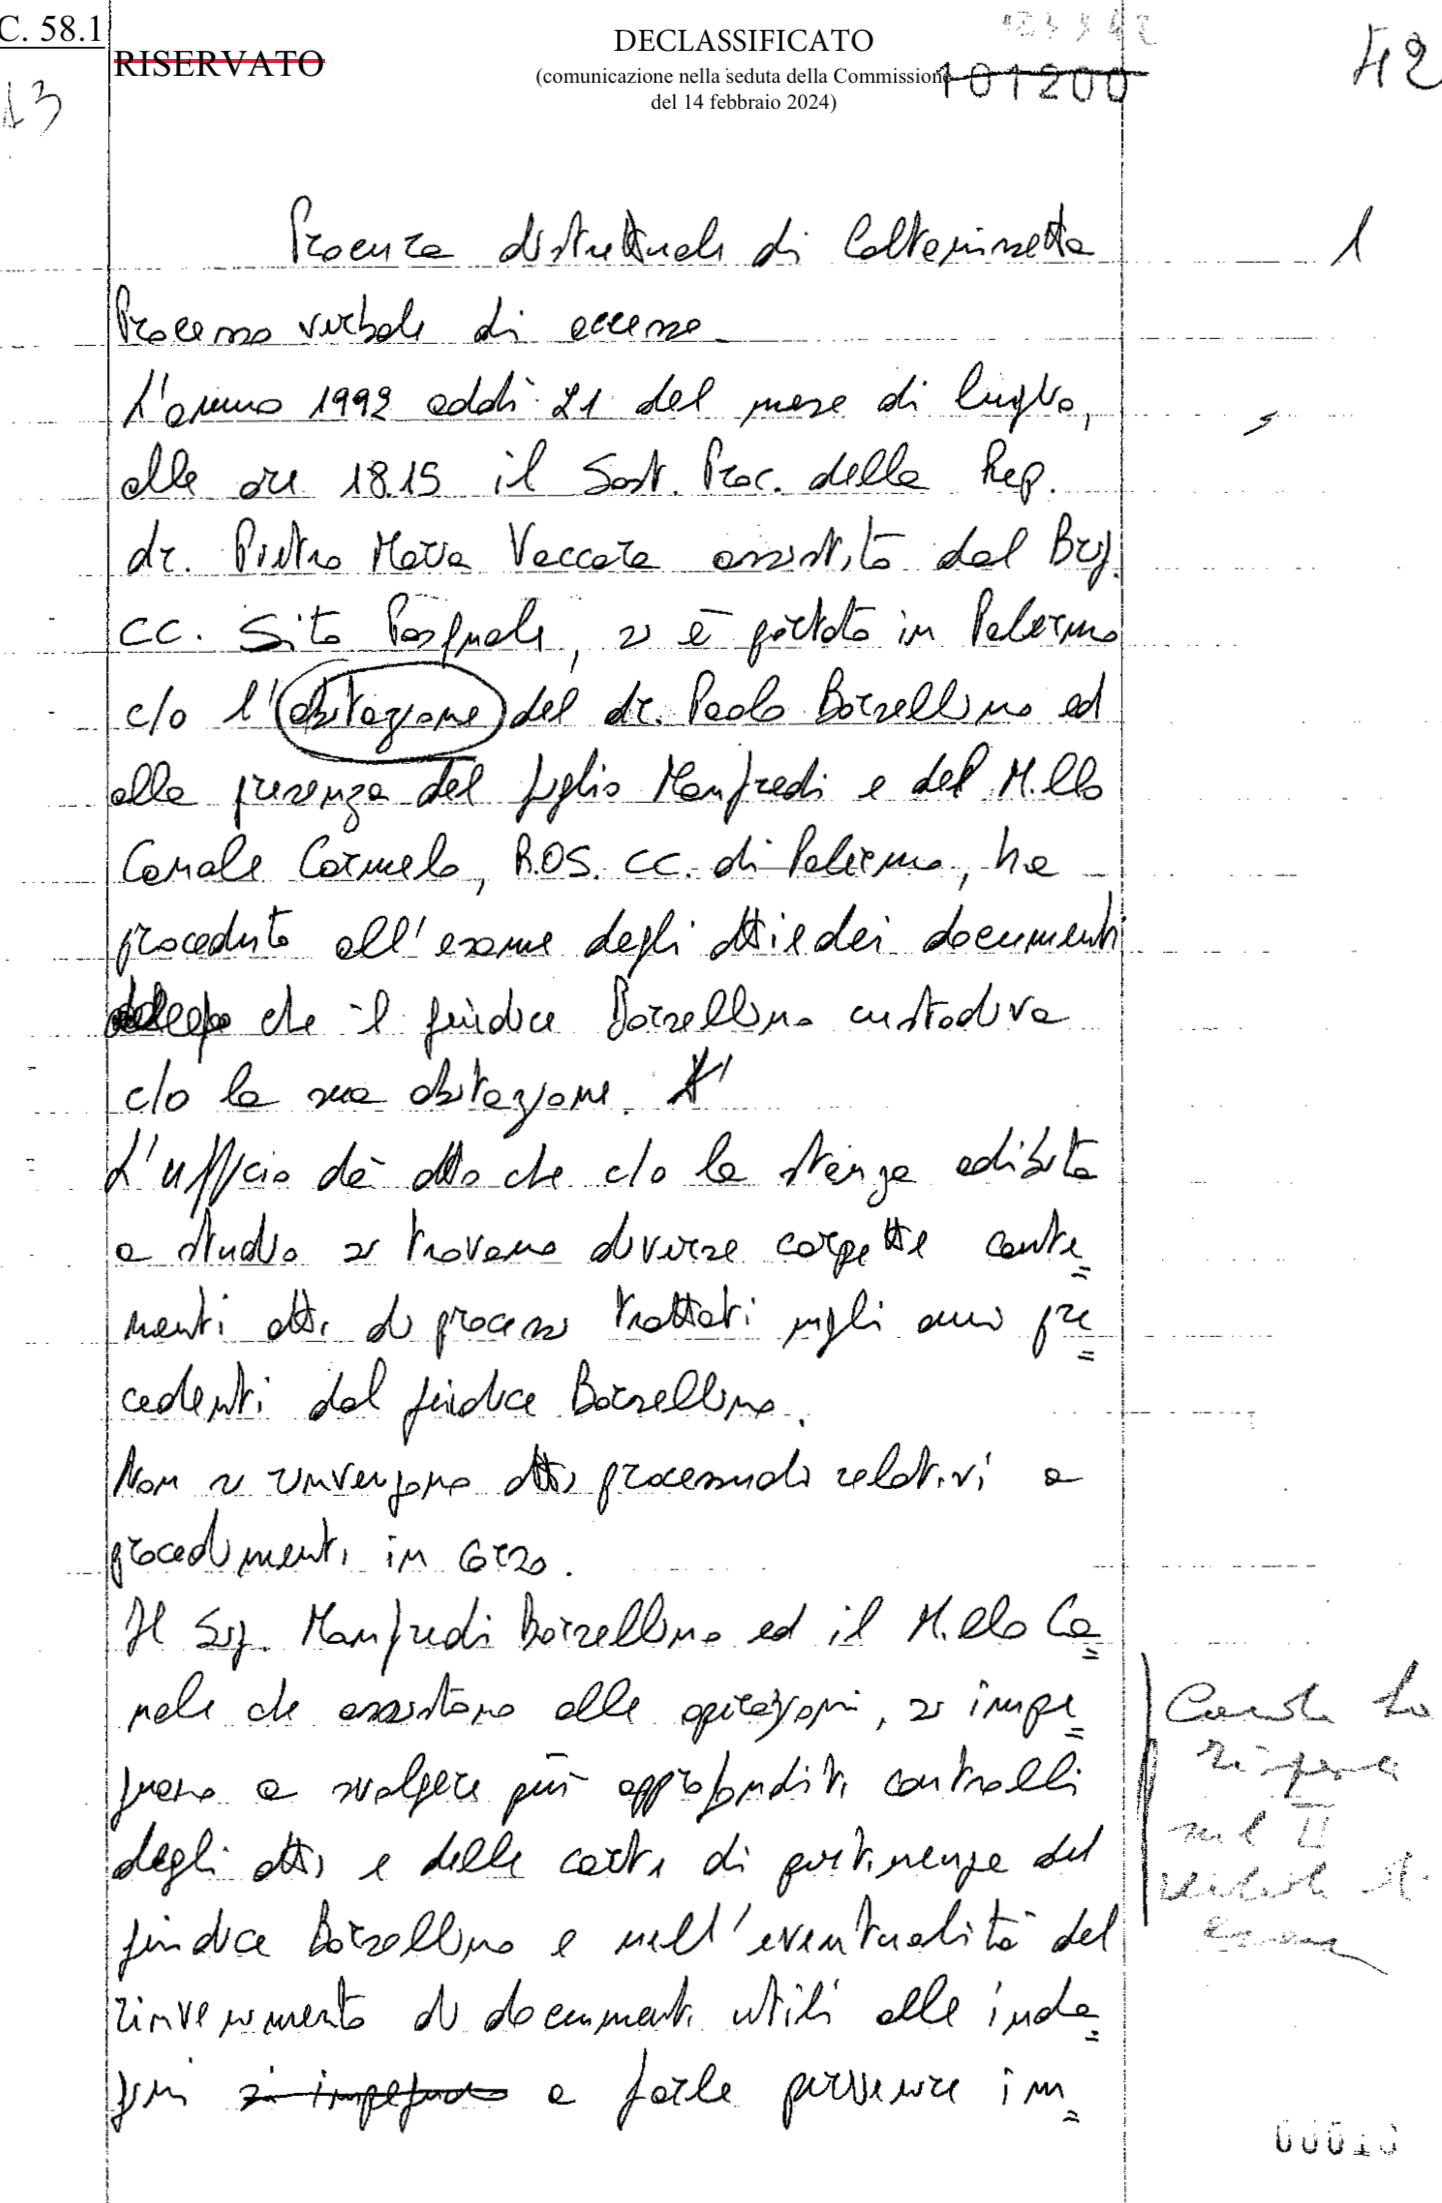 C. 58.1
RISERVATO
DECLASSIFICATO
(comunicazione nella seduta della Commissione
del 14 febbraio 2024)
101200
42
13
Procura distrettuale di Caltanissetta
1
Processo verbale di accesso
L'anno 1992 addì 21 del mese di luglio,
alle ore 18.15 il Sost. Proc. della Rep.
dr. Pietro Maria Vaccara assistito dal Brig.
CC. Sito Pasquale, si è portato in Palermo
c/o l'abitazione del dr. Paolo Borsellino ed
alla presenza del figlio Manfredi e del M.llo
Canale Carmelo, R.O.S. CC. di Palermo, ha
proceduto all'esame degli atti e dei documenti
che il giudice Borsellino custodiva
c/o la sua abitazione.
L'ufficio dà atto che c/o la stanza adibita
a studio si trovano diverse carpette conte=
nenti atti di processi trattati negli anni pre=
cedenti dal giudice Borsellino.
Non si rinvengono atti processuali relativi a
procedimenti in corso.
Il Sig. Manfredi Borsellino ed il M.llo Ca=
nale che assistono alle operazioni, si impe=
gnano a svolgere più approfonditi controlli
degli atti e delle carte di pertinenza del
giudice Borsellino e nell'eventualità del
rinvenimento di documenti utili alle inda=
gini si impegnano a farle pervenire im=
Canale ha
sul II
verbale di
00013